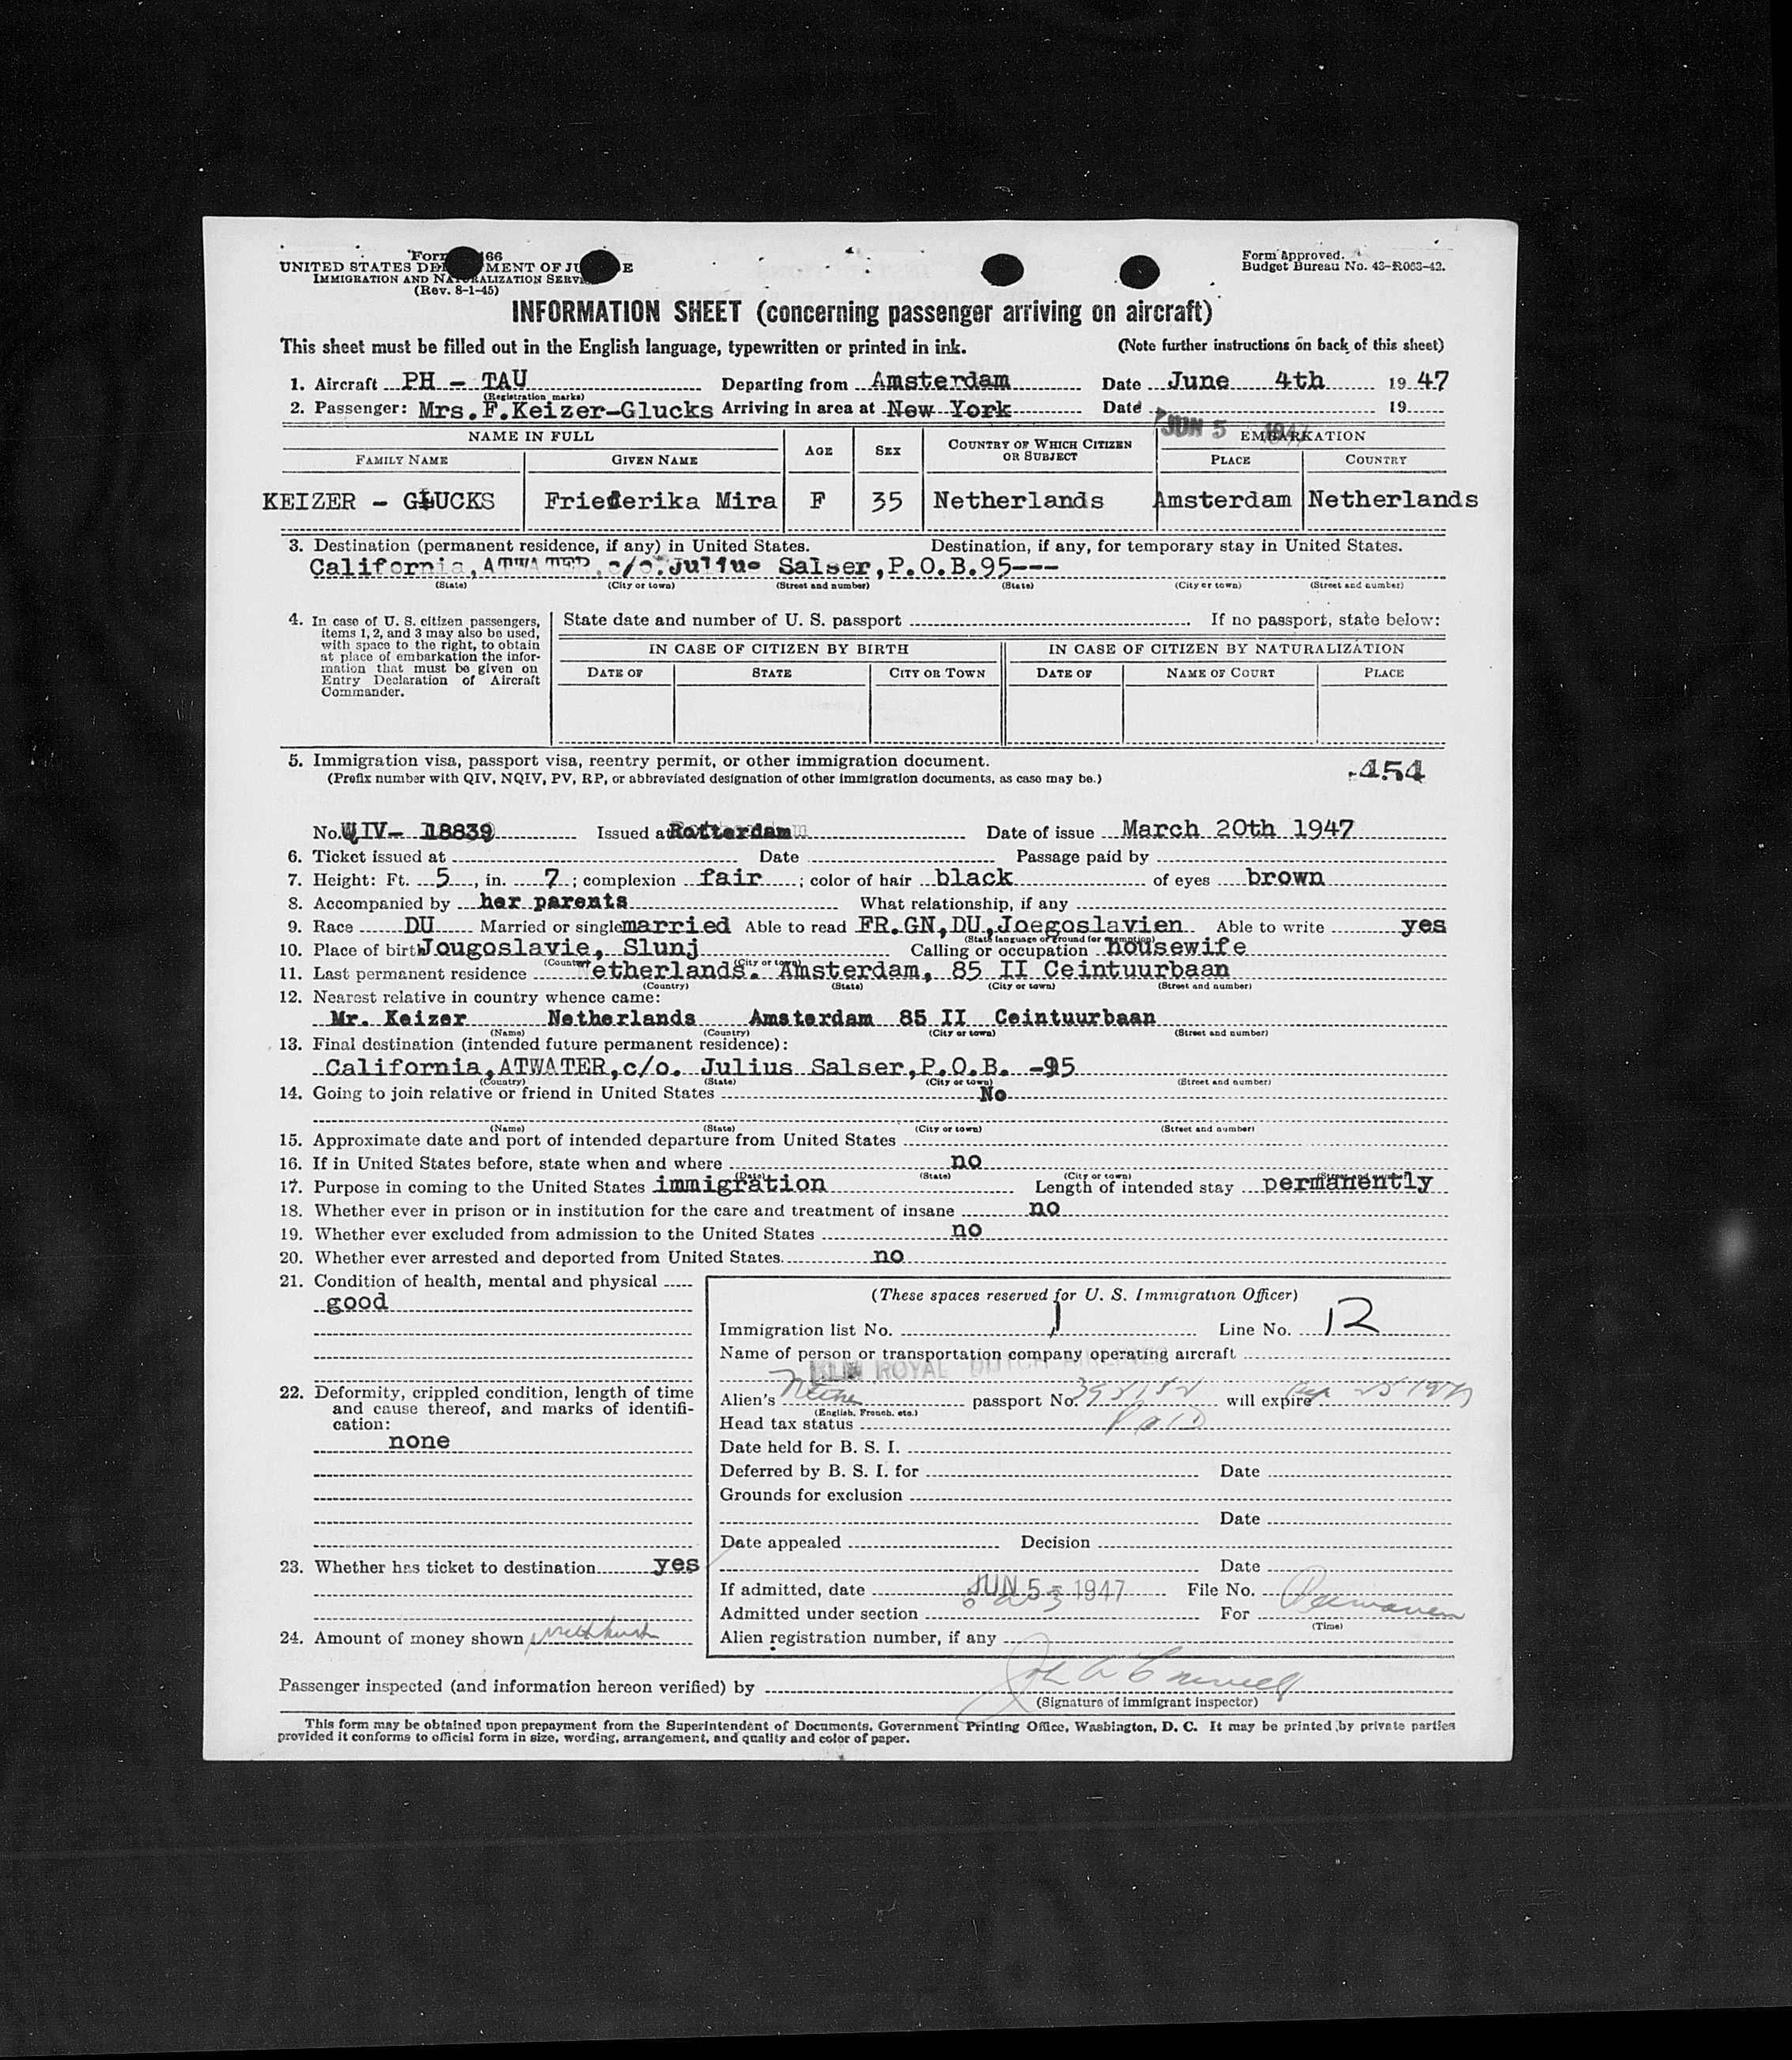 Form 66
UNITED STATES DE MENT OF JU E
IMMIGRATION AND NATURALIZATION SERV
(Rev. 8-1-45)
Form Approved.
Budget Bureau No. 43-R063-42.
INFORMATION SHEET (concerning passenger arriving on aircraft)
This sheet must be filled out in the English language, typewritten or printed in ink. (Note further instructions on back of this sheet)
1. Aircraft PH - TAU Departing from Amsterdam Date June 4th 19 47
(Registration marks)
2. Passenger: Mrs.F.Keizer-Glucks Arriving in area at New York Date 19
JUN 5 1947
NAME IN FULL AGE SEX COUNTRY OF WHICH CITIZEN OR SUBJECT EMBARKATION
FAMILY NAME GIVEN NAME PLACE COUNTRY
KEIZER - GLUCKS Friederika Mira F 35 Netherlands Amsterdam Netherlands
3. Destination (permanent residence, if any) in United States. Destination, if any, for temporary stay in United States.
California,ATWATER,c/o.Julius Salser,P.O.B.95---
(State) (City or town) (Street and number) (State) (City or town) (Street and number)
4. In case of U. S. citizen passengers,
items 1, 2, and 3 may also be used,
with space to the right, to obtain
at place of embarkation the infor-
mation that must be given on
Entry Declaration of Aircraft
Commander.
State date and number of U. S. passport If no passport, state below:
IN CASE OF CITIZEN BY BIRTH IN CASE OF CITIZEN BY NATURALIZATION
DATE OF STATE CITY OR TOWN DATE OF NAME OF COURT PLACE
5. Immigration visa, passport visa, reentry permit, or other immigration document.
(Prefix number with QIV, NQIV, PV, RP, or abbreviated designation of other immigration documents, as case may be.)
454
No. QIV- 18839 Issued at Rotterdam Date of issue March 20th 1947
6. Ticket issued at Date Passage paid by
7. Height: Ft. 5, in. 7; complexion fair; color of hair black of eyes brown
8. Accompanied by her parents What relationship, if any
9. Race DU Married or single married Able to read FR.GN,DU,Joegoslavien Able to write yes
(State language or ground for exemption)
10. Place of birth Jougoslavie, Slunj Calling or occupation housewife
(Country) (City or town)
11. Last permanent residence Netherlands. Amsterdam, 85 II Ceintuurbaan
(Country) (State) (City or town) (Street and number)
12. Nearest relative in country whence came:
Mr. Keizer Netherlands Amsterdam 85 II Ceintuurbaan
(Name) (Country) (City or town) (Street and number)
13. Final destination (intended future permanent residence):
California,ATWATER,c/o. Julius Salser,P.O.B. -95
(Country) (State) (City or town) (Street and number)
14. Going to join relative or friend in United States No
(Name) (State) (City or town) (Street and number)
15. Approximate date and port of intended departure from United States
16. If in United States before, state when and where no
(Date) (State) (City or town) (Street and number)
17. Purpose in coming to the United States immigration Length of intended stay permanently
18. Whether ever in prison or in institution for the care and treatment of insane no
19. Whether ever excluded from admission to the United States no
20. Whether ever arrested and deported from United States. no
21. Condition of health, mental and physical
good
22. Deformity, crippled condition, length of time
and cause thereof, and marks of identifi-
cation:
none
23. Whether has ticket to destination yes
24. Amount of money shown
(These spaces reserved for U. S. Immigration Officer)
Immigration list No. 1 Line No. 12
Name of person or transportation company operating aircraft
KLM ROYAL DUTCH AIRLINES
Alien's passport No. will expire
(English, French, etc.)
Head tax status Paid
Date held for B. S. I.
Deferred by B. S. I. for Date
Grounds for exclusion
Date
Date appealed Decision
Date
If admitted, date JUN 5 - 1947 File No.
Admitted under section For
(Time)
Alien registration number, if any
Passenger inspected (and information hereon verified) by
(Signature of immigrant inspector)
This form may be obtained upon prepayment from the Superintendent of Documents, Government Printing Office, Washington, D. C. It may be printed by private parties
provided it conforms to official form in size, wording, arrangement, and quality and color of paper.